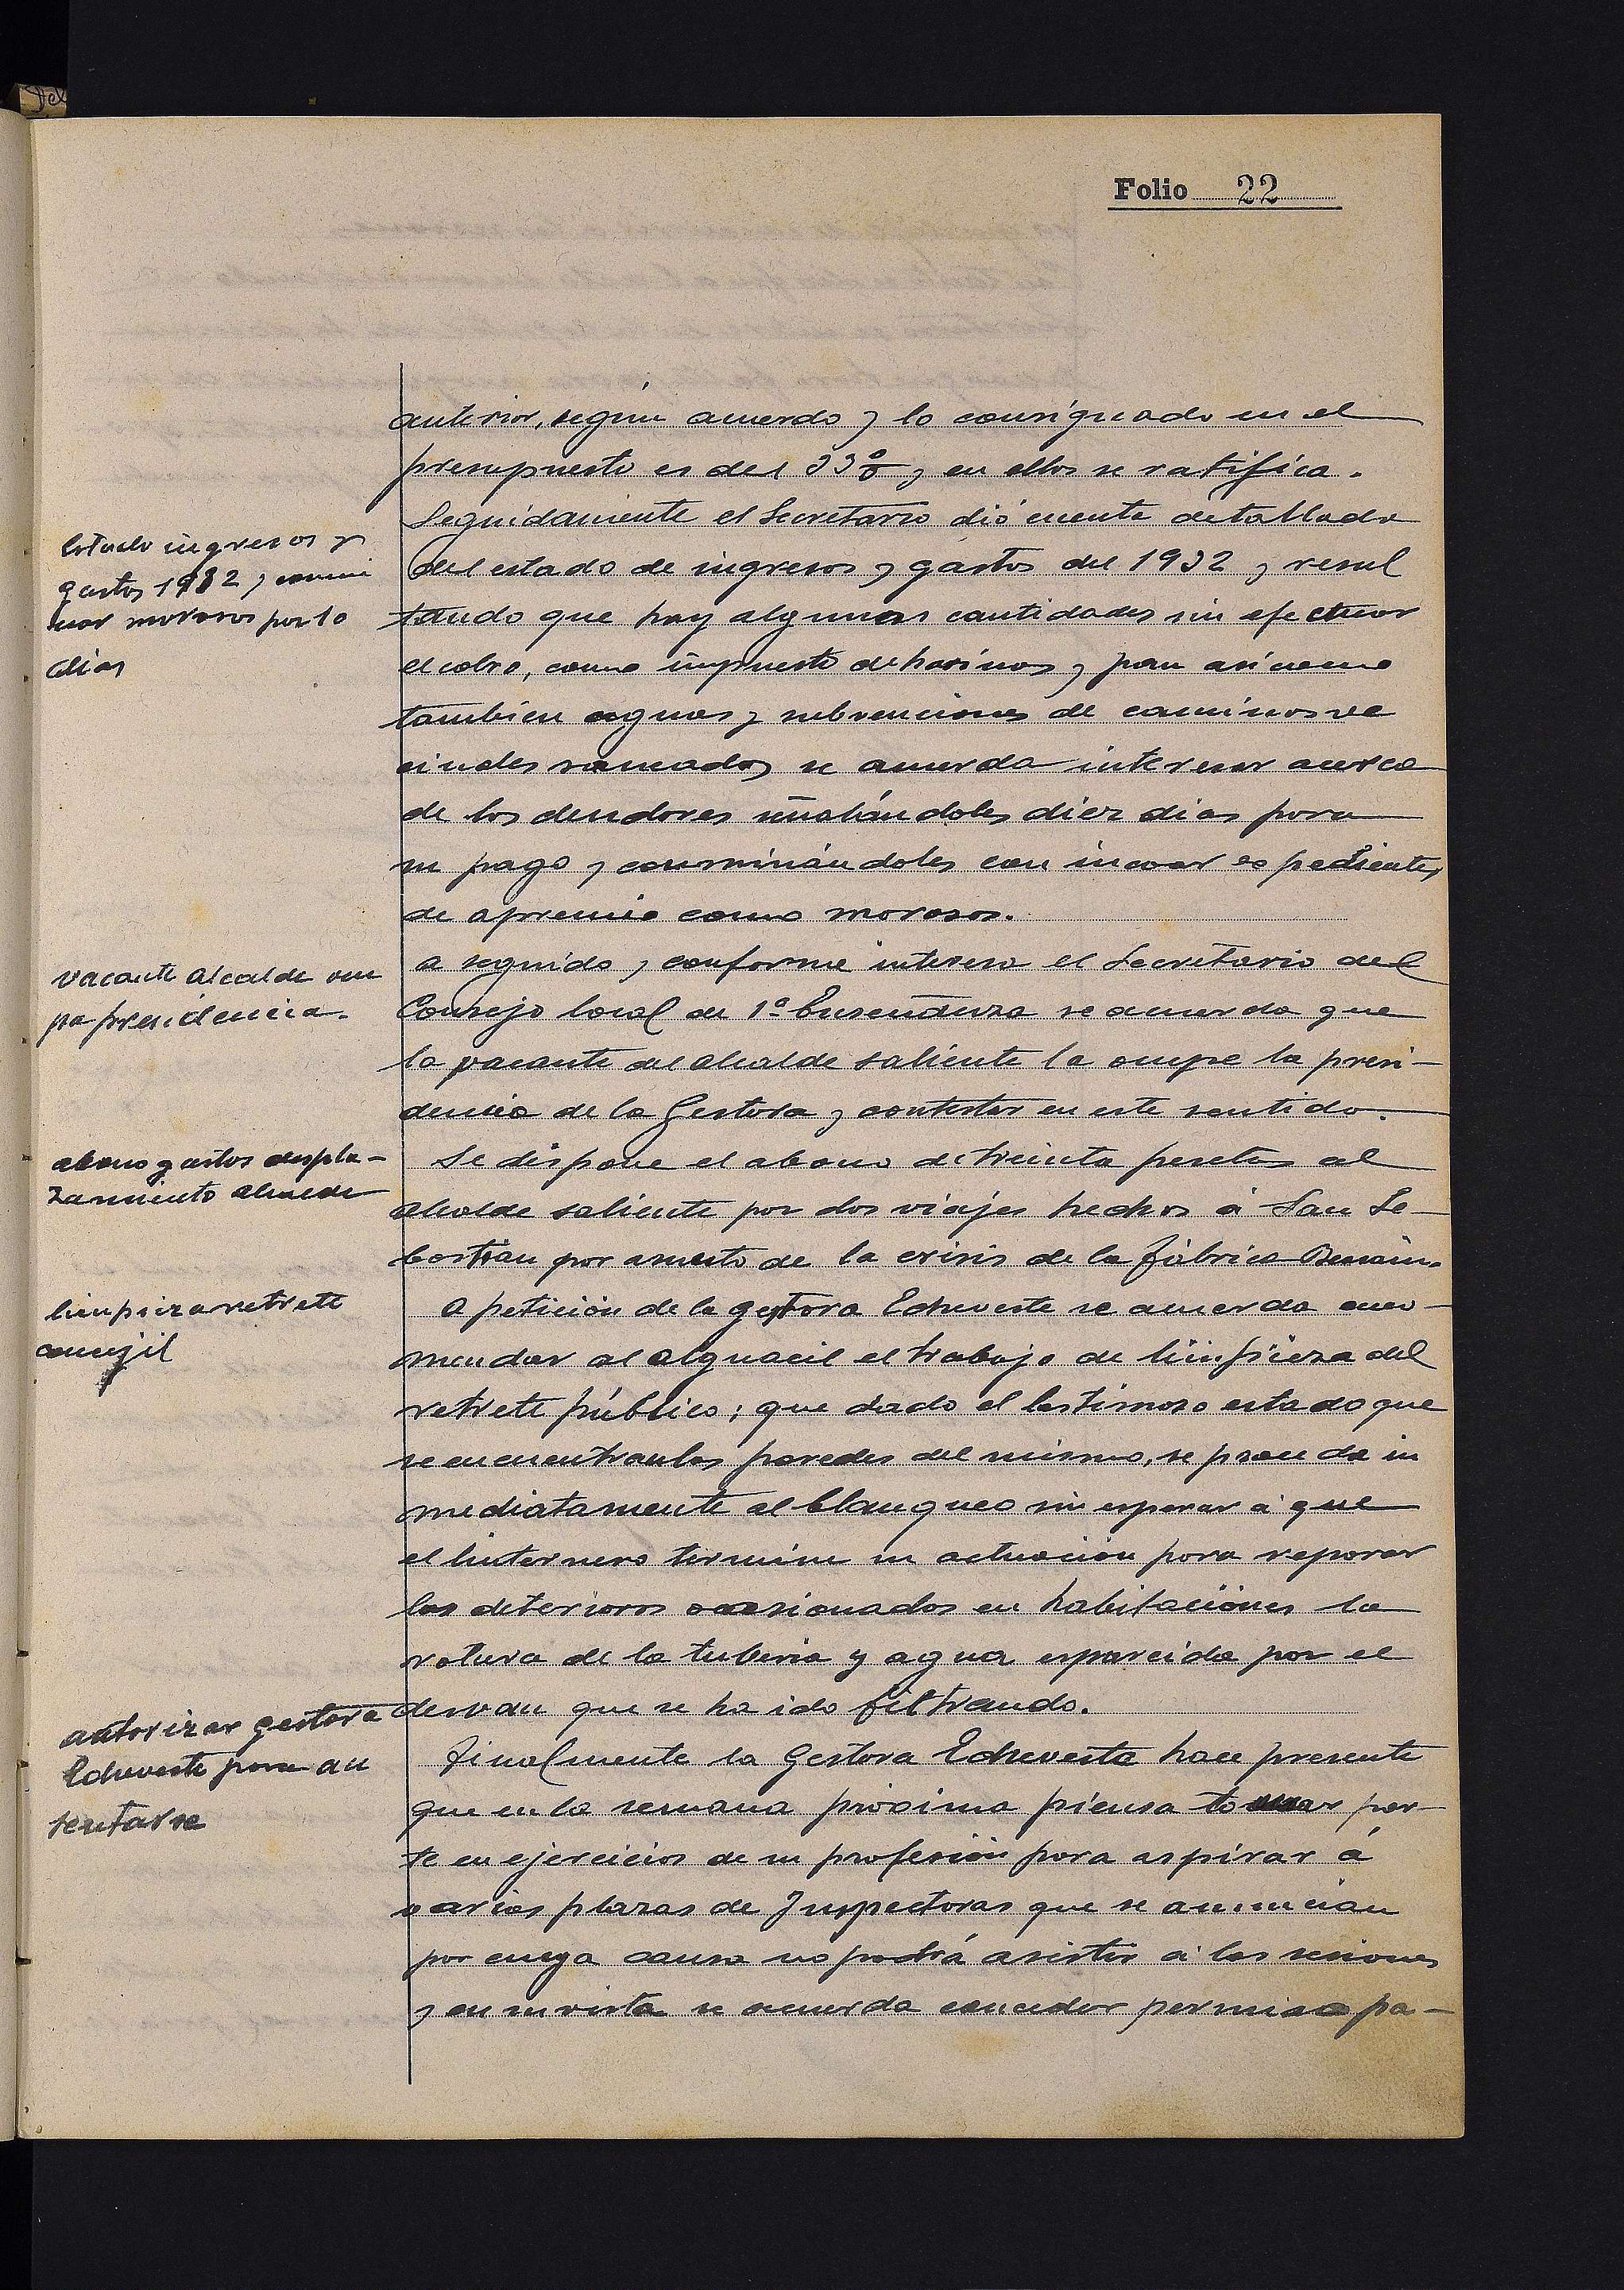 Folio 22
anterior, según acuerdo y lo consignado en el
presupuesto es del 33% y en ellos se ratifica.
Seguidamente el Secretario dió cuenta detallada
Estado ingresos y
gastos 1932 y conmi
nar morosos por 10
dias
del estado de ingresos y gastos del 1932 y resul
tando que hay algunas cantidades sin efectuar
el cobro, como impuesto de harinas y pan asi como
tambien aguas y subvenciones de caminos ve
cinales saneados se acuerda interesar acerca
de los deudores señalándoles diez dias para
su pago y conminándoles con incoar expedientes
de apremio como morosos.
vacante alcalde ocu
pa presidencia.
a seguido y conforme interesa el Secretario del
Consejo local de 1ª Enseñanza se acuerda que
la vacante del alcalde saliente la ocupe la presi-
dencia de la Gestora y contestar en este sentido.
abono gastos despla-
zamiento alcalde
Se dispone el abono de treinta pesetas al
alcalde saliente por dos viajes hechos á San Se-
bastián por asunto de la crisis de la fábrica
limpieza retrete
concejil
A petición de la gestora Echeveste se acuerda enco-
mendar al alguacil el trabajo de limpieza del
retrete público; que dado el lastimoso estado que
se encuentran las paredes del mismo, se proceda in
mediatamente al blanqueo sin esperar á que
el linternero termine su actuación para reparar
los deterioros ocasionados en habitaciones la
rotura de la tuberia y agua esparcida por el
desvan que se ha ido filtrando.
autorizar gestora
Echeveste para au
sentarse
Finalmente la Gestora Echeveste hace presente
que en la semana proxima piensa tomar par-
te en ejercicios de su profesión para aspirar á
varias plazas de Inspectoras que se anuncian
por cuya causa no podrá asistir á las sesiones
y en su vista se acuerda conceder permiso pa-